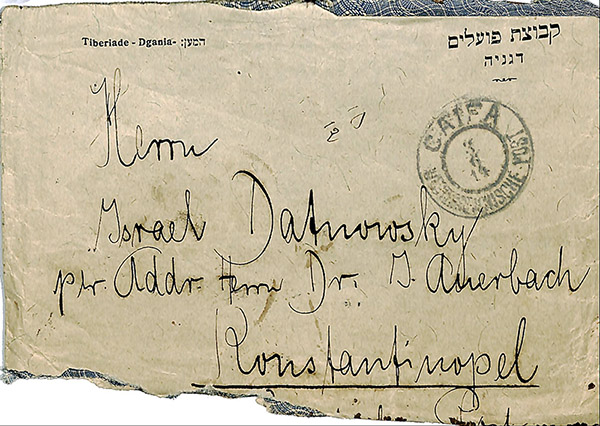 Tiberiade - Dgania- המען:
קבוצת פועלים
דגניה
CAIFA
POST
Herrn
Israel Datnowsky
per Addr. Herrn Dr. I. Auerbach
Konstantinopel